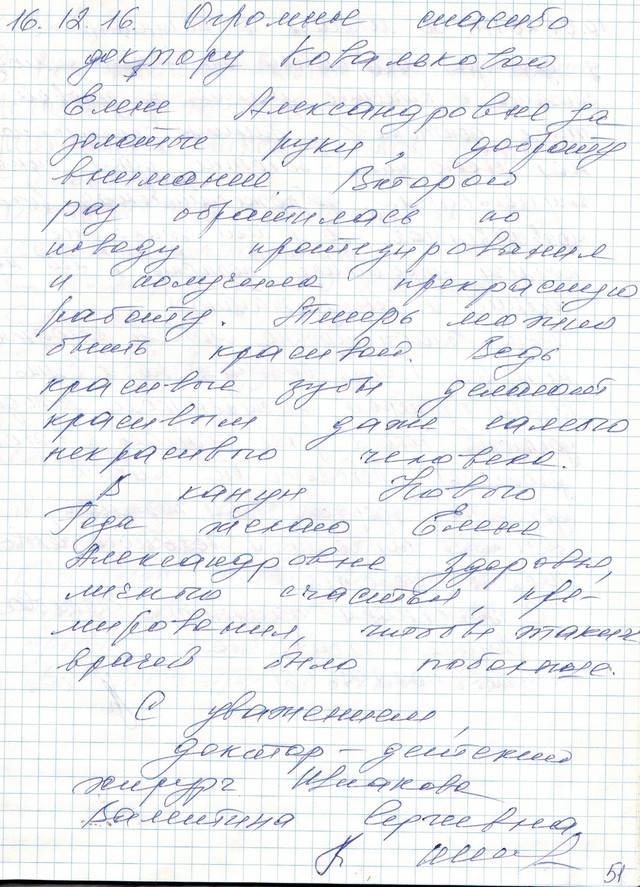 16.12.16. Огромное спасибо
доктору Ковальковой
Елене Александровне за
золотые руки, доброту
внимание. Второй
раз обратилась по
поводу протезирования
и получила прекрасную
работу. Теперь можно
быть красивой. Ведь
красивые зубы делают
красивым даже самого
некрасивого человека.
В канун Нового
Года желаю Елене
Александровне здоровья,
личного счастья, пре-
мирования, чтобы таких
врачей было побольше.
С уважением,
доктор - детский
хирург
Валентина Сергеевна
51